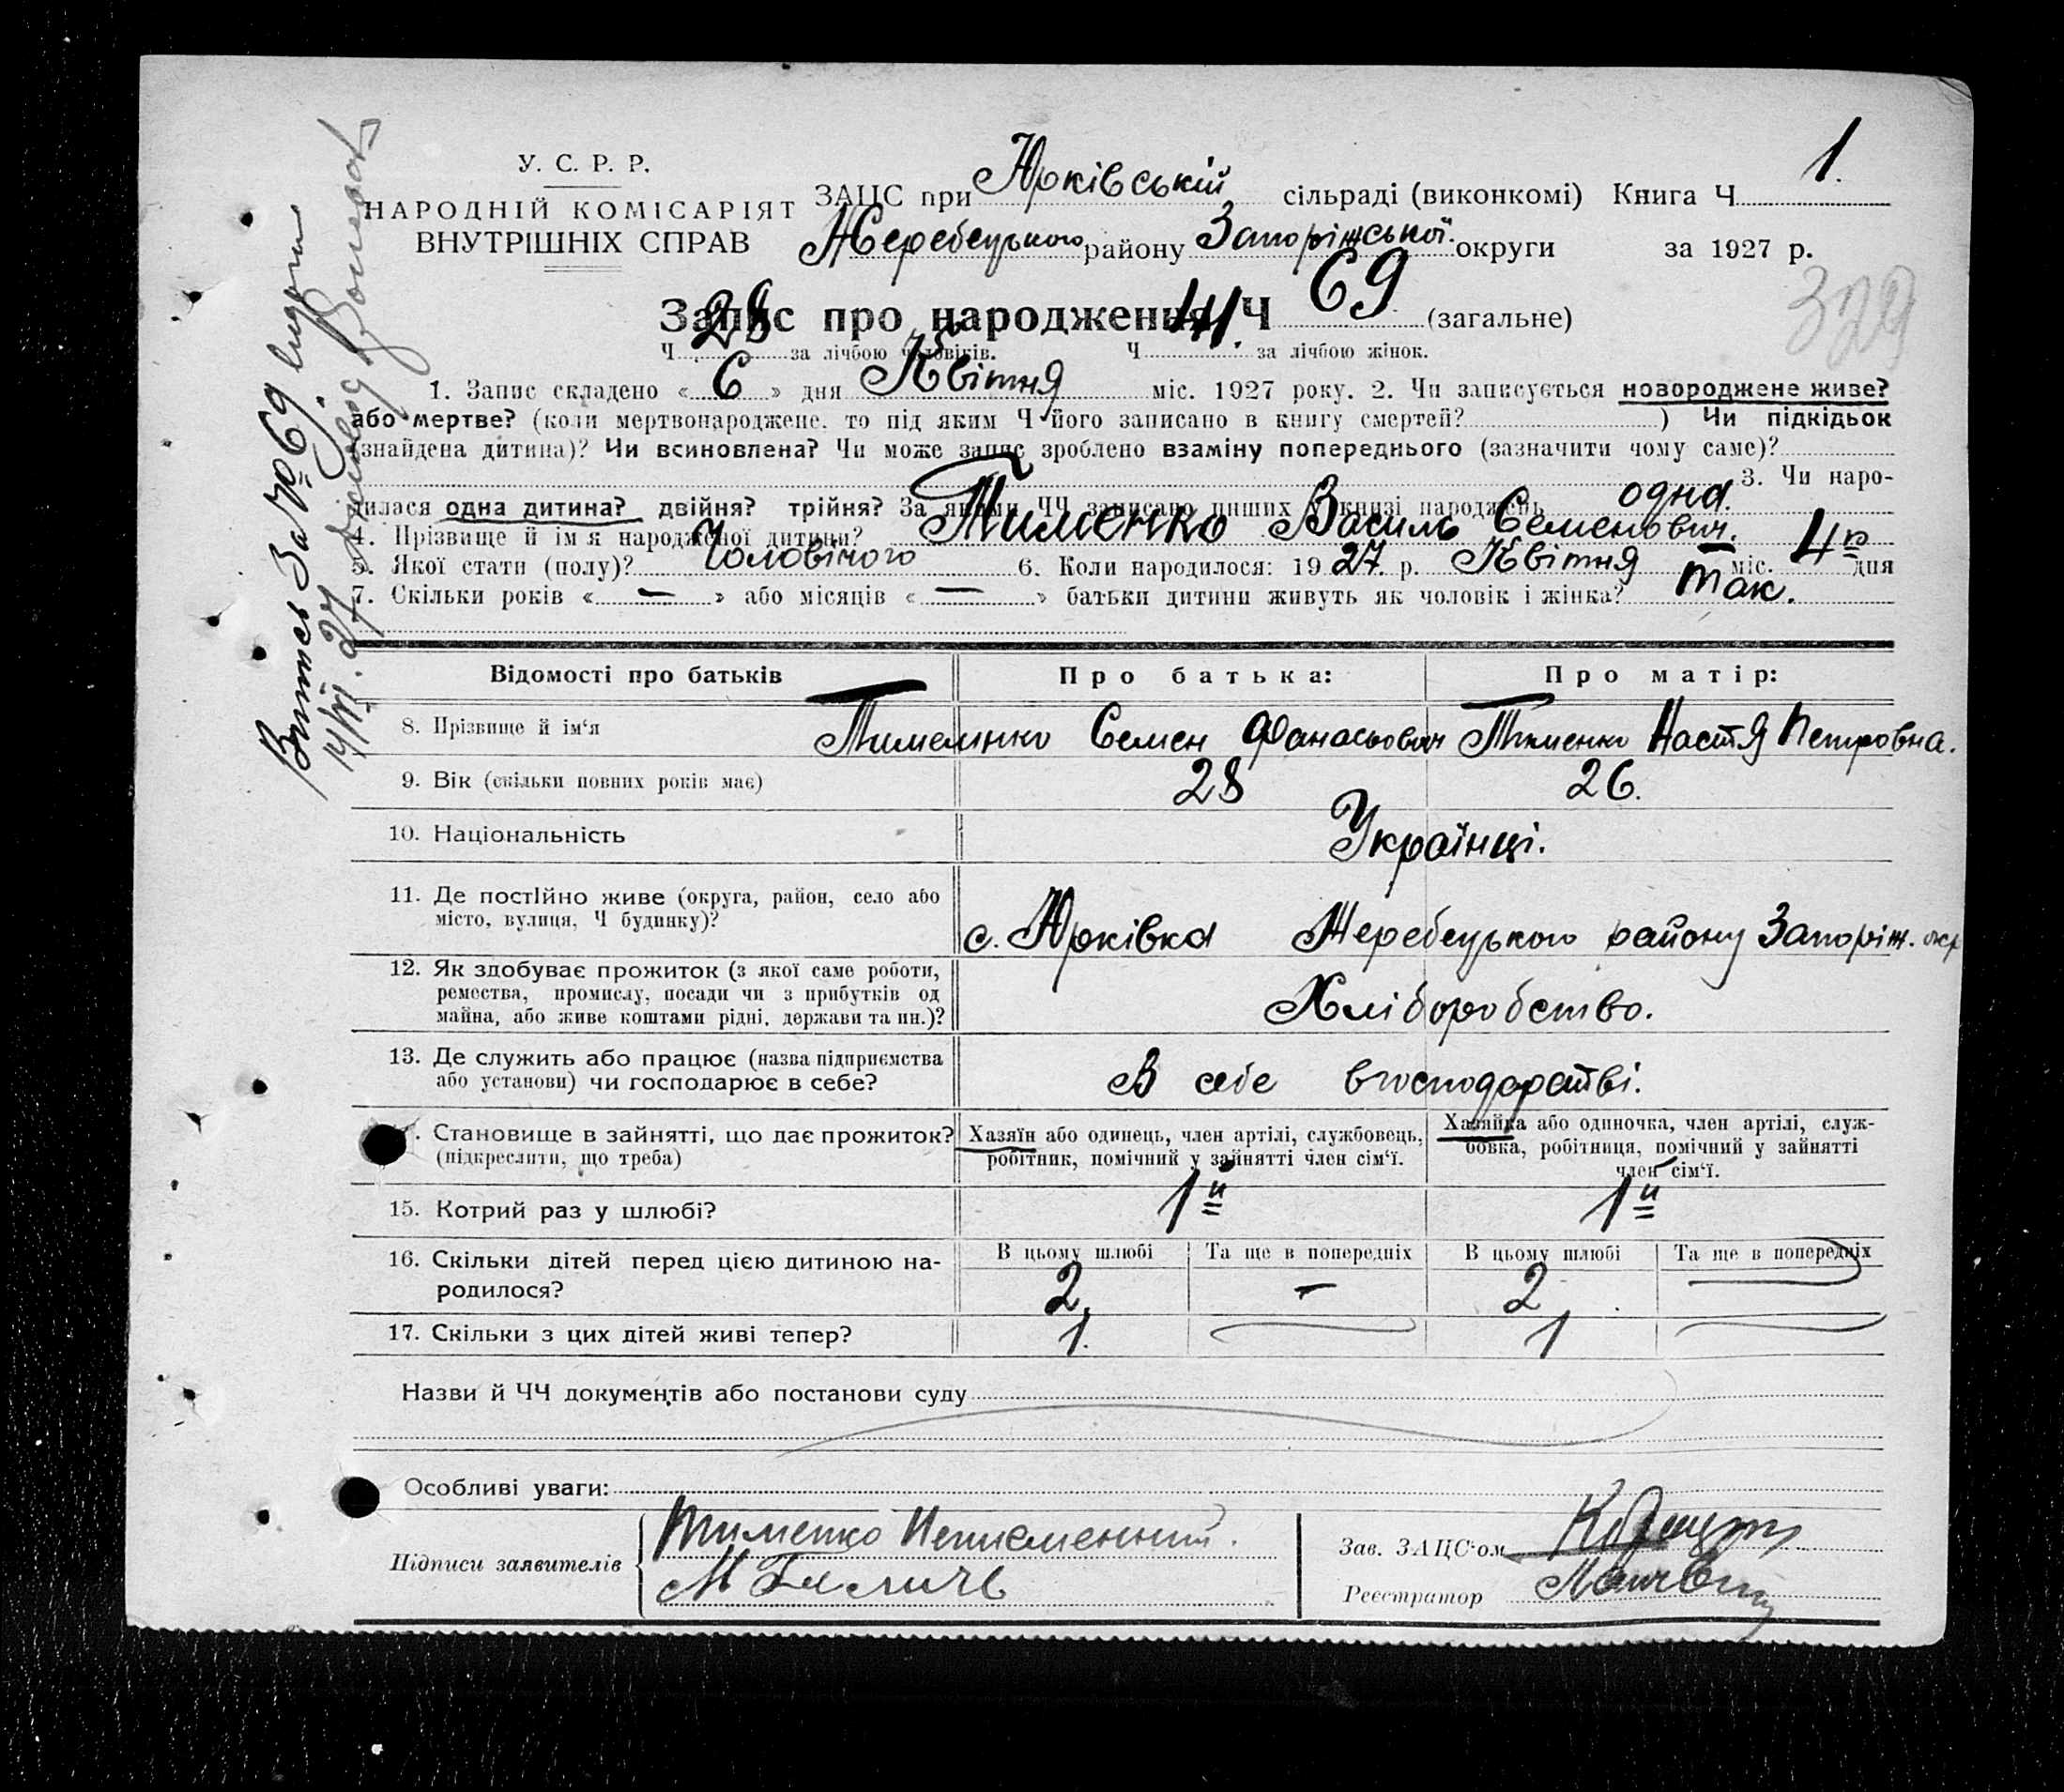 1.
У. С. Р. Р.
НАРОДНІЙ КОМІСАРІЯТ
ВНУТРІШНІХ СПРАВ
ЗАЦС при Юрківській сільраді (виконкомі) Книга Ч
Жеребецького району Запоріжської округи за 1927 р.
329
Запис про народження Ч 69 (загальне)
Ч 28 за лічбою чоловіків. Ч 41. за лічбою жінок.
1. Запис складено « 6 » дня Квітня міс. 1927 року. 2. Чи записується новороджене живе?
або мертве? (коли мертвонароджене, то під яким Ч його записано в книгу смертей? ) Чи підкідьок
(знайдена дитина)? Чи всиновлена? Чи може запис зроблено взаміну попереднього (зазначити чому саме)?
3. Чи наро-
дилася одна дитина? двійня? трійня? За якими ЧЧ записано инших у книзі народжень одна.
4. Прізвище й ім'я народженої дитини? Тименко Василь Семенович.
5. Якої стати (полу)? Чоловічого 6. Коли народилося: 1927 р. Квітня міс. 4го дня
7. Скільки років « — » або місяців « — » батьки дитини живуть як чоловік і жінка? Так.
Відомості про батьків Про батька: Про матір:
8. Прізвище й ім'я Тименко Семен Фанасьович Тименко Настя Петровна.
9. Вік (скільки повних років має) 28 26.
10. Національність Українці.
11. Де постійно живе (округа, район, село або
місто, вулиця, Ч будинку)? с. Юрківка Жеребецького району Запоріж. окр
12. Як здобуває прожиток (з якої саме роботи,
ремества, промислу, посади чи з прибутків од
майна, або живе коштами рідні, держави та ин.)? Хліборобство.
13. Де служить або працює (назва підприємства
або установи) чи господарює в себе? В себе вгосподарстві.
. Становище в зайнятті, що дає прожиток?
(підкреслити, що треба)
Хазяїн або одинець, член артілі, службовець,
робітник, помічний у зайнятті член сім'ї.
Хазяйка або одиночка, член артілі, служ-
бовка, робітниця, помічний у зайнятті
член сім'ї.
15. Котрий раз у шлюбі? 1й 1й
16. Скільки дітей перед цією дитиною на-
родилося?
В цьому шлюбі Та ще в попередніх В цьому шлюбі Та ще в попередніх
2 — 2
17. Скільки з цих дітей живі тепер? 1. 1
Назви й ЧЧ документів або постанови суду
Особливі уваги:
Підписи заявителів
Тименко Неписьменний.
Зав. ЗАЦС'ом
Реєстратор
За № 69